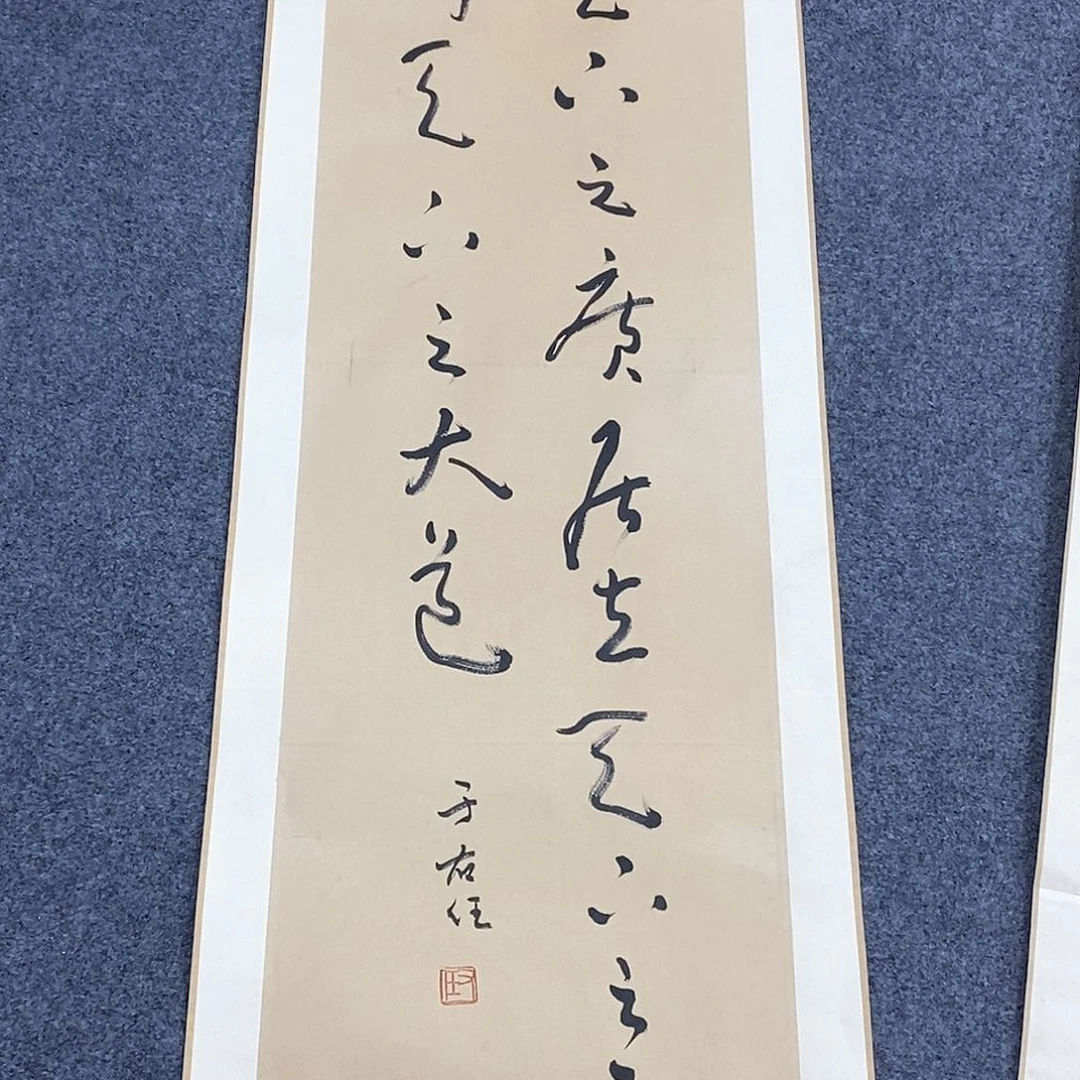 天下之廣居立天下之
行天下之大道
于右任